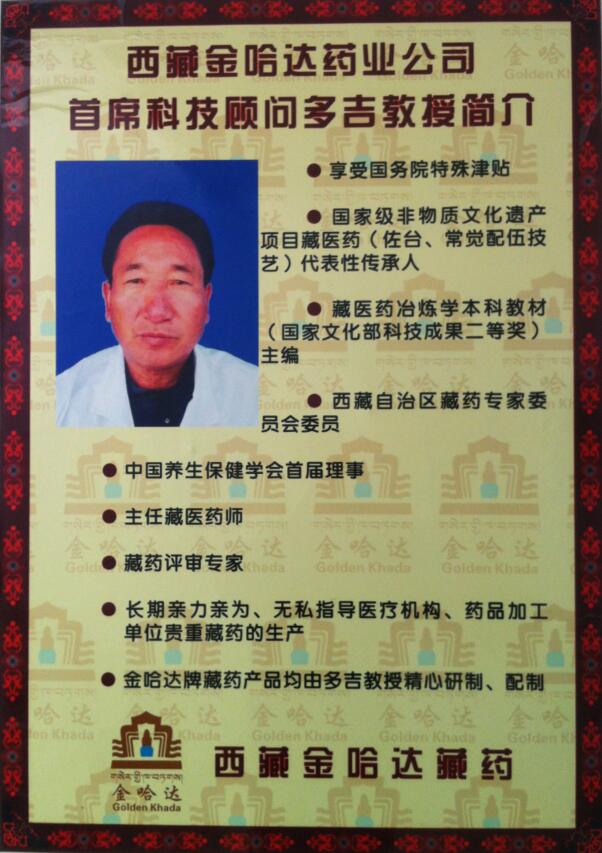 西藏金哈达药业公司
首席科技顾问多吉教授简介
● 享受国务院特殊津贴
● 国家级非物质文化遗产
项目藏医药（佐台、常觉配伍技
艺）代表性传承人
● 藏医药冶炼学本科教材
（国家文化部科技成果二等奖）
主编
● 西藏自治区藏药专家委
员会委员
● 中国养生保健学会首届理事
● 主任藏医药师
● 藏药评审专家
● 长期亲力亲为、无私指导医疗机构、药品加工
单位贵重藏药的生产
● 金哈达牌藏药产品均由多吉教授精心研制、配制
གསེར་གྱི་ཁ་བཏགས།
金哈达
Golden Khada
西藏金哈达藏药